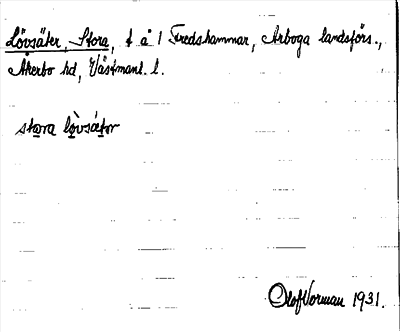 Lövsäter, Stora, t å 1 Fredshammar, Arboga landsförs.,
Åkerbo hd, Västmanl. l.
stora lò̤vsátər
Olof Norman 1931.